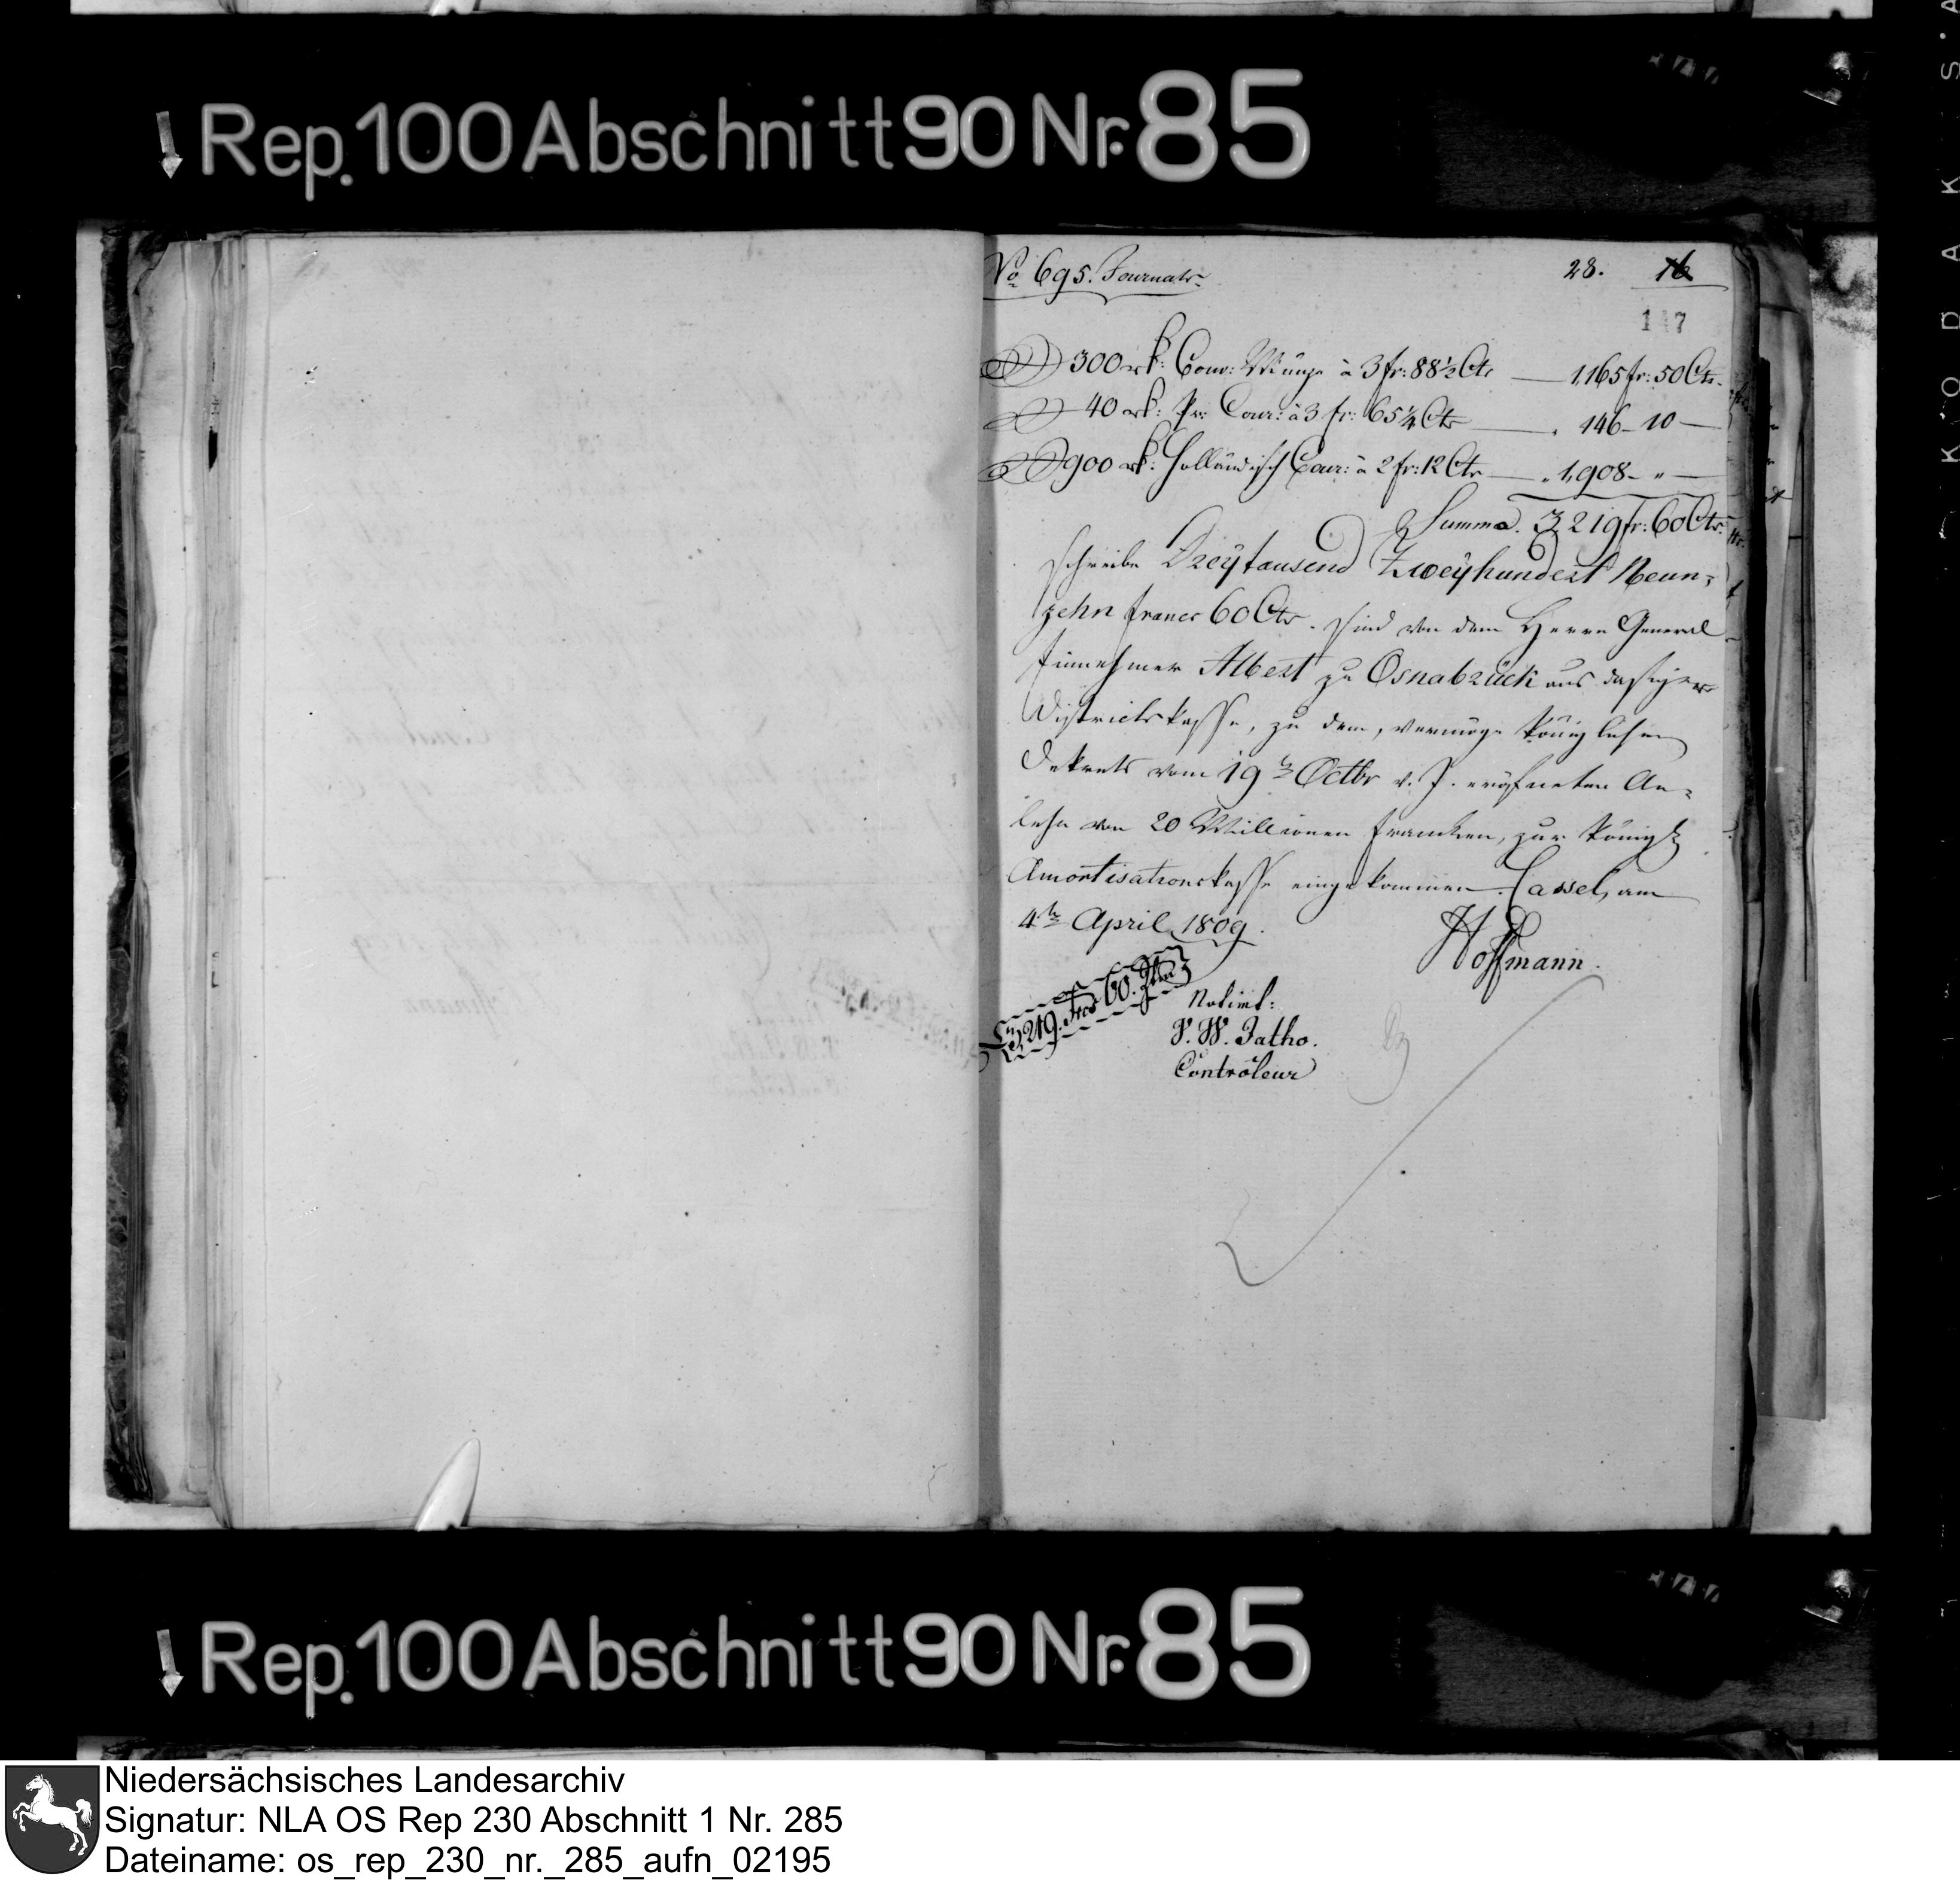 Rep. 100 Abschnitt 90 Nr. 85
No 695. Journals
28. 16
147
300 rt: Conv: Münze à 3 fr: 88 1/2 Cts — 1,165 fr: 50 Cts.
40 rt: Pr: Cour: à 3 fr: 65 1/4 Cts — " 146 – 10 —
900 rt: Holländisch Cour: à 2 fr: 12 Cts — " 1,908 – " —
Summa. 3219 fr: 60 Cts.
schreibe Dreytausend Zweyhundert Neun-
zehn francs 60 Cts. sind von dem Herrn General
Einnehmer Albert zu Osnabrück aus dasiger
Districtskasse, zu dem, vermöge Königlichen
Dekrets vom 19ten Octbr v. J. eröfneten An-
lehn von 20 Millionen Franken, zur Königl
Amortisationskasse eingekommen. Cassel, am
4ten April 1809.
Hoffmann.
3,219. Frcs 60. Ctm
Notirt:
V. W. Jatho.
Contrôleur
Rep. 100 Abschnitt 90 Nr. 85
KODAK
Niedersächsisches Landesarchiv
Signatur: NLA OS Rep 230 Abschnitt 1 Nr. 285
Dateiname: os_rep_230_nr._285_aufn_02195